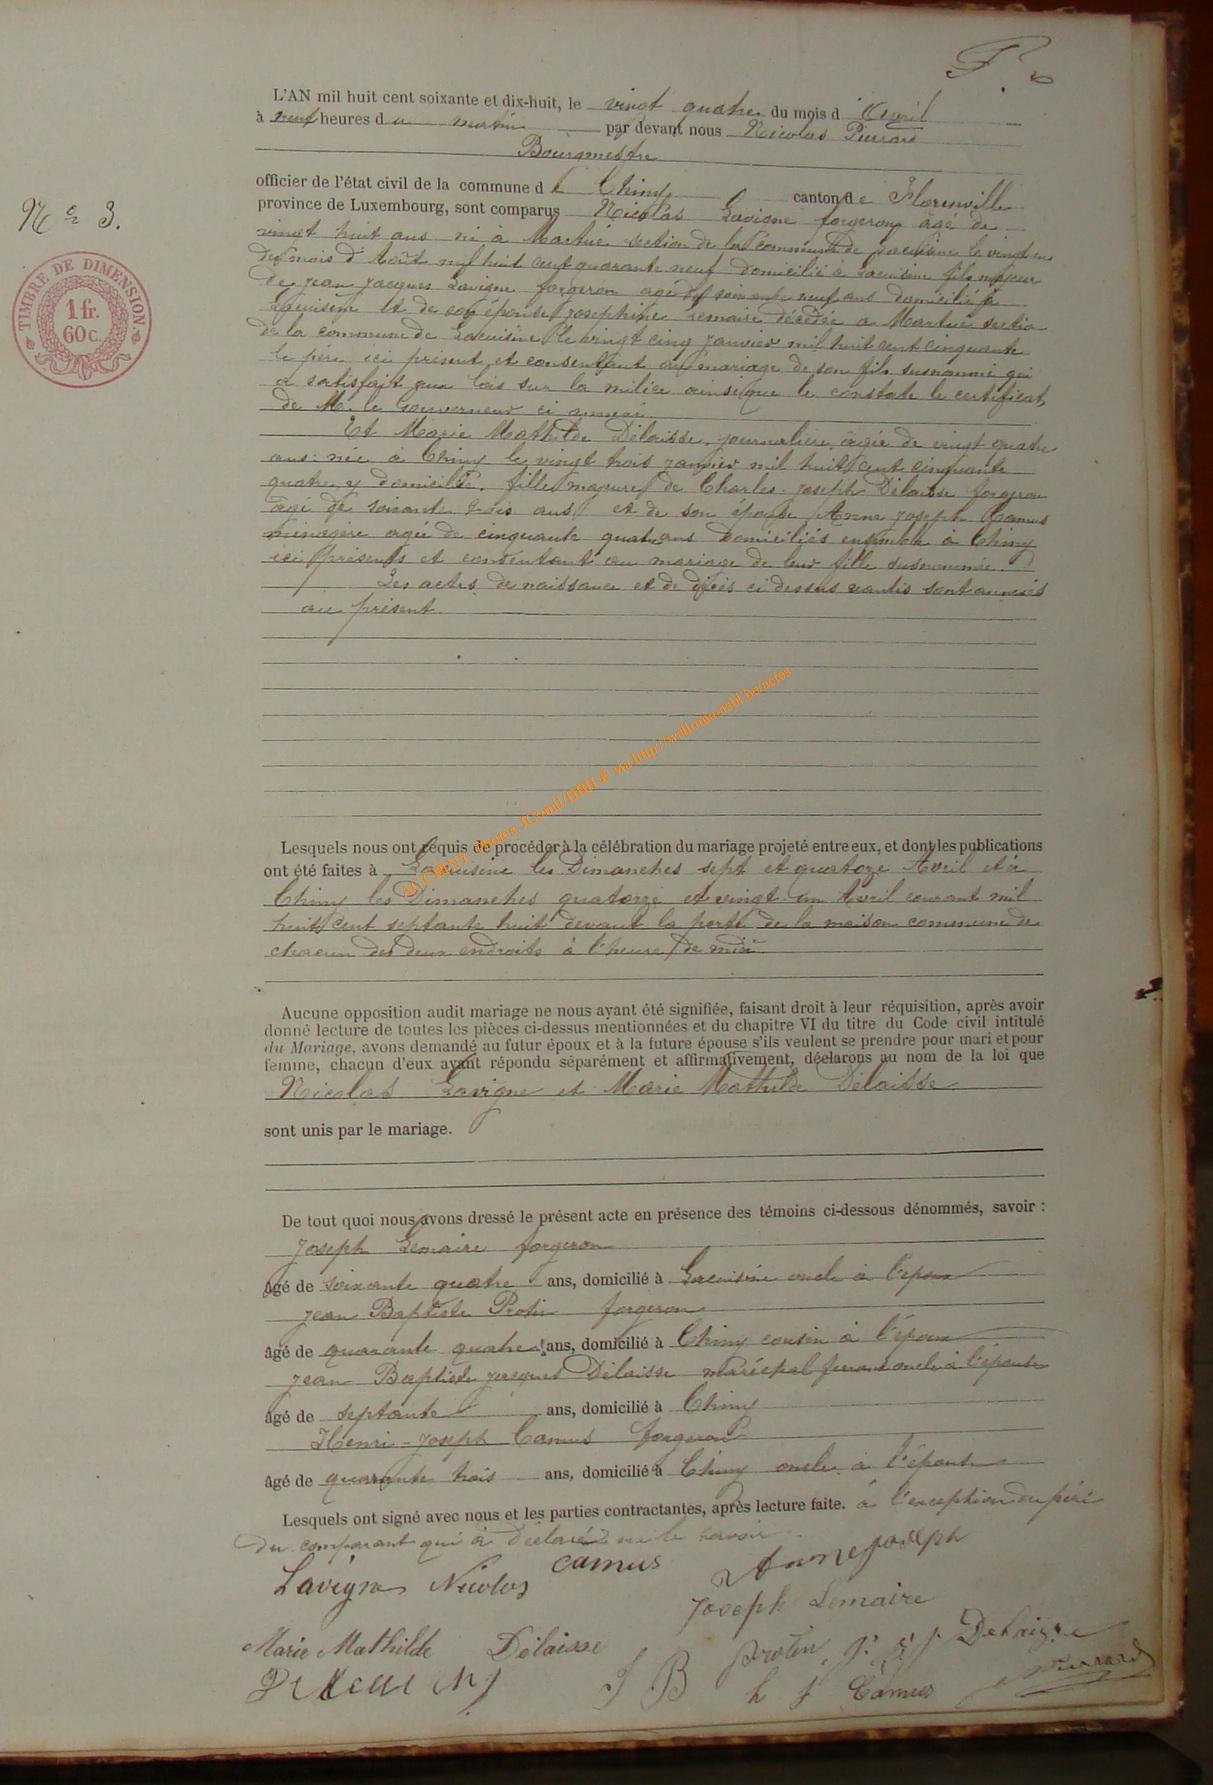 L'AN mil huit cent soixante et dix-huit, le vingt quatre du mois d'Avril
à neuf heures du matin par devant nous Nicolas Pierrard
Bourgmestre
officier de l'état civil de la commune de Chiny canton de Florenville
province de Luxembourg, sont comparus Nicolas Lavigne forgeron âgé de
N° 3.
vingt huit ans né à Martué section de la commune de Lacuisine le vingt un
du mois d'Août mil huit cent quarante neuf domicilié à Lacuisine fils majeur
TIMBRE DE DIMENSION
1 fr.
60 c.
de Jean Jacques Lavigne forgeron agé de soixante neuf ans domicilié à
Lacuisine et de son épouse Josephine Lemaire décédée a Martué section
de la commune de Lacuisine le vingt cinq Janvier mil huit cent cinquante
le père ici présent et consentant au mariage de son fils susnommé qui
a satisfait aux lois sur la milice ainsi que le constate le certificat
de M. le Gouverneur ci annexé.
Et Marie Mathilde Délaisse, journalière, âgée de vingt quatre
ans: née à Chiny le vingt trois Janvier mil huit cent cinquante
quatre y domiciliée, fille majeure de Charles-Joseph Délaisse forgeron
âgé de soixante trois ans et de son épouse Anne Joseph Camus
ménagère agée de cinquante quatre ans domiciliés ensemble à Chiny
ici présents et consentant au mariage de leur fille susnommée.
Les actes de naissance et de décès ci dessus relatés sont annexés
au présent
Lesquels nous ont requis de procéder à la célébration du mariage projeté entre eux, et dont les publications
ont été faites à Lacuisine les Dimanches sept et quatorze Avril et à
Chiny les Dimanches quatorze et vingt-un Avril courant mil
huit cent septante huit devant la porte de la maison commune de
chacun des deux endroits à l'heure de midi
Aucune opposition audit mariage ne nous ayant été signifiée, faisant droit à leur réquisition, après avoir
donné lecture de toutes les pièces ci-dessus mentionnées et du chapitre VI du titre du Code civil intitulé
du Mariage, avons demandé au futur époux et à la future épouse s'ils veulent se prendre pour mari et pour
femme, chacun d'eux ayant répondu séparément et affirmativement, déclarons au nom de la loi que
Nicolas Lavigne et Marie Mathilde Délaisse
sont unis par le mariage.
De tout quoi nous avons dressé le présent acte en présence des témoins ci-dessous dénommés, savoir :
Joseph Lemaire forgeron
âgé de soixante quatre ans, domicilié à Lacuisine oncle à l'époux
Jean Baptiste Protin forgeron
âgé de quarante quatre ans, domicilié à Chiny cousin à l'époux
Jean Baptiste Jacques Délaisse maréchal ferrant oncle à l'épouse
âgé de septante ans, domicilié à Chiny
Henri-Joseph Camus forgeron
âgé de quarante trois ans, domicilié à Chiny oncle à l'épouse
Lesquels ont signé avec nous et les parties contractantes, après lecture faite. à l'exception du père
du comparant qui à déclaré ne le savoir.
Lavigne Nicolas camus Anne joseph
Joseph Lemaire
Marie Mathilde Délaisse
J B Protin
h j Camus Pierrard